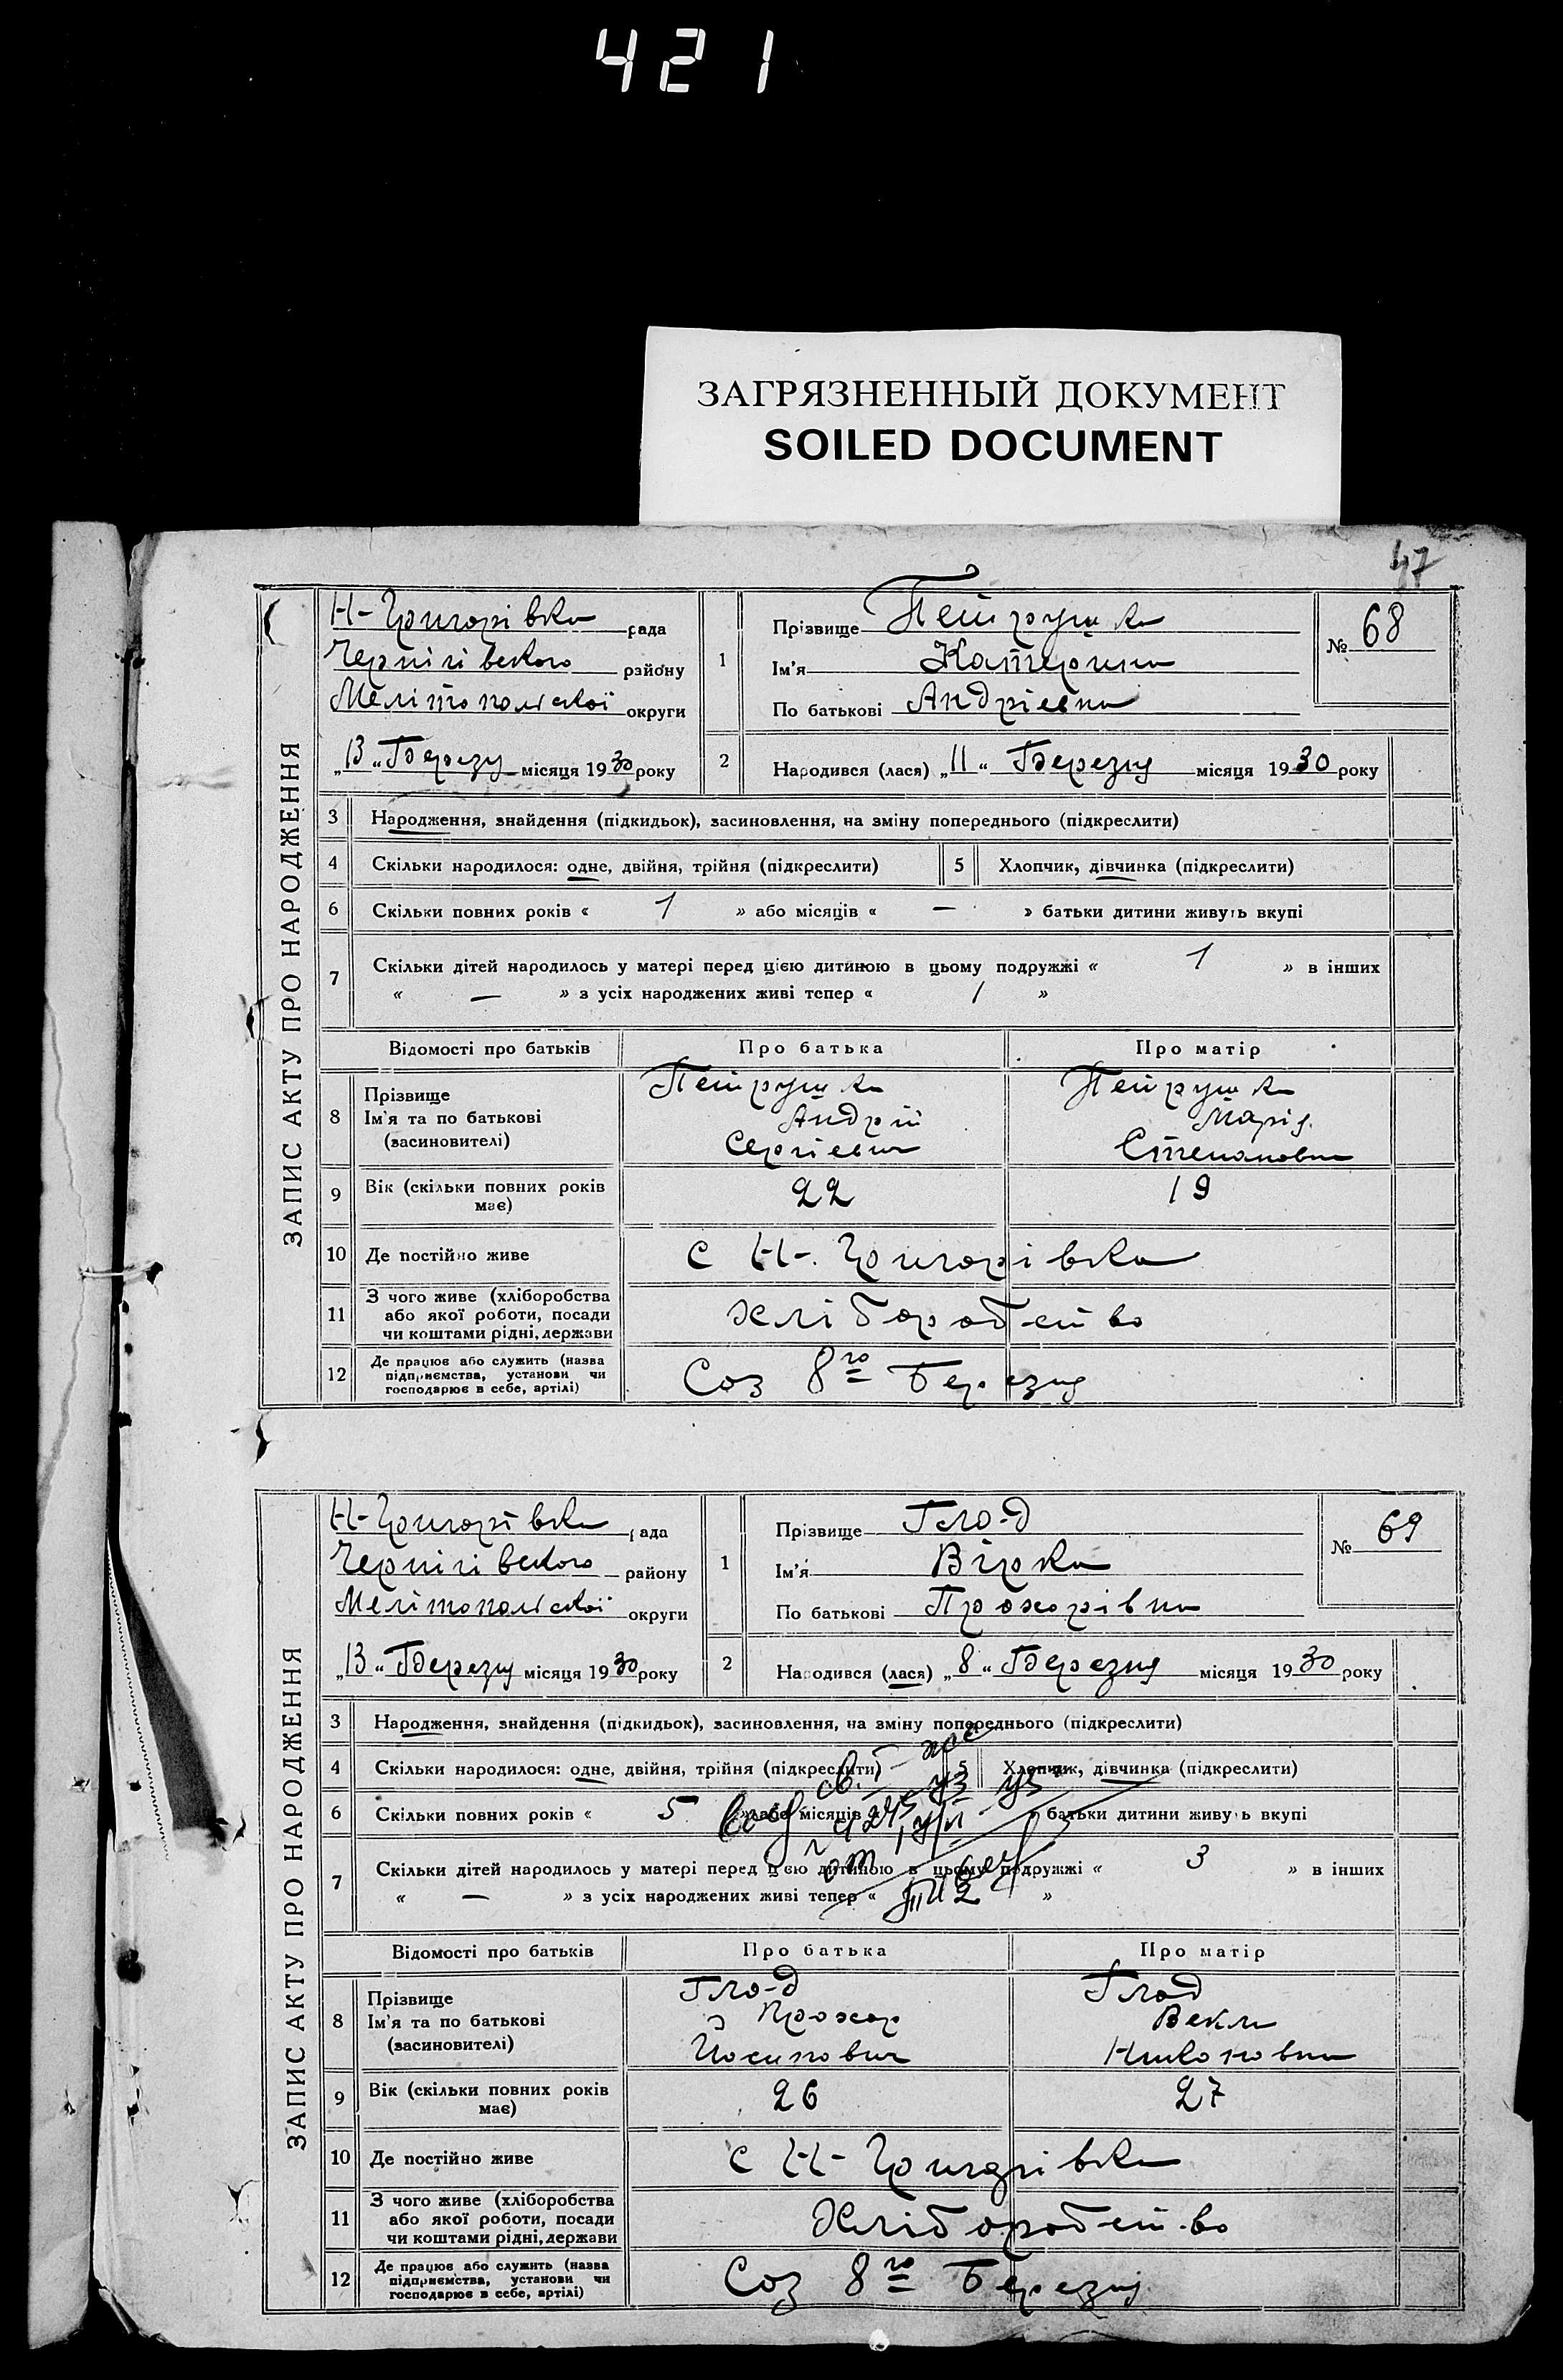 421
ЗАГРЯЗНЕННЫЙ ДОКУМЕНТ
SOILED DOCUMENT
47
ЗАПИС АКТУ ПРО НАРОДЖЕННЯ
Н-Григорівка рада
Чернігівського району
Мелітопольської округи
„13“ Березня місяця 1930 року
1
Прізвище Петрушка
Ім'я Катерина
По батькові Андріевна
№ 68
2 Народився (лася) „11“ Березня місяця 1930 року
3 Народження, знайдення (підкидьок), засиновлення, на зміну попереднього (підкреслити)
4 Скільки народилося: одне, двійня, трійня (підкреслити) 5 Хлопчик, дівчинка (підкреслити)
6 Скільки повних років « 1 » або місяців « — » батьки дитини живуть вкупі
7 Скільки дітей народилось у матері перед цією дитиною в цьому подружжі « 1 » в інших
« — » з усіх народжених живі тепер « 1 »
Відомості про батьків Про батька Про матір
8 Прізвище Петрушка Петрушка
Ім'я та по батькові Андрій Марія
(засиновителі) Сергіевич Степановна
9 Вік (скільки повних років 22 19
має)
10 Де постійно живе с Н-Григорівка
11 З чого живе (хліборобства
або якої роботи, посади Хліборобство
чи коштами рідні, держави
12 Де працює або служить (назва
підприємства, установи чи Соз 8го Березня
господарює в себе, артілі)
ЗАПИС АКТУ ПРО НАРОДЖЕННЯ
Н-Григорівка рада
Чернігівського району
Мелітопольської округи
„13“ Березня місяця 1930 року
1
Прізвище Гло-д
Ім'я Вірка
По батькові Прохорівна
№ 69
2 Народився (лася) „8“ Березня місяця 1930 року
3 Народження, знайдення (підкидьок), засиновлення, на зміну попереднього (підкреслити)
4 Скільки народилося: одне, двійня, трійня (підкреслити) 5 Хлопчик, дівчинка (підкреслити)
6 Скільки повних років « 5 » або місяців « » батьки дитини живуть вкупі
7 Скільки дітей народилось у матері перед цією дитиною в цьому подружжі « 3 » в інших
« — » з усіх народжених живі тепер « 2 »
Відомості про батьків Про батька Про матір
8 Прізвище Гло-д Глод
Ім'я та по батькові Прохор Векла
(засиновителі) Йосипович Никоновна
9 Вік (скільки повних років 26 27
має)
10 Де постійно живе с Н-Григорівка
11 З чого живе (хліборобства
або якої роботи, посади Хліборобство
чи коштами рідні, держави
12 Де працює або служить (назва
підприємства, установи чи Соз 8го Березня
господарює в себе, артілі)